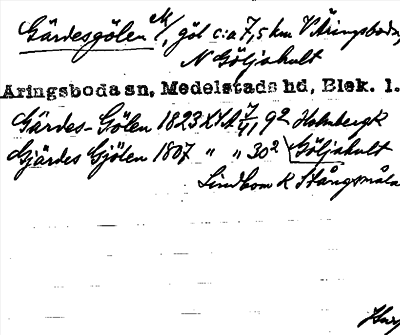 Gärdesgölen M/, göl c:a 7,5 km V Åringsboda,
N Göljahult
Aringsboda sn, Medelstads hd, Blek. l.
Gärdes-Gölen 1823 92 Holmbergk
Gjärdes Gjölen 1807 " " 30² Göljahult
Lindbom k Stångsmåla